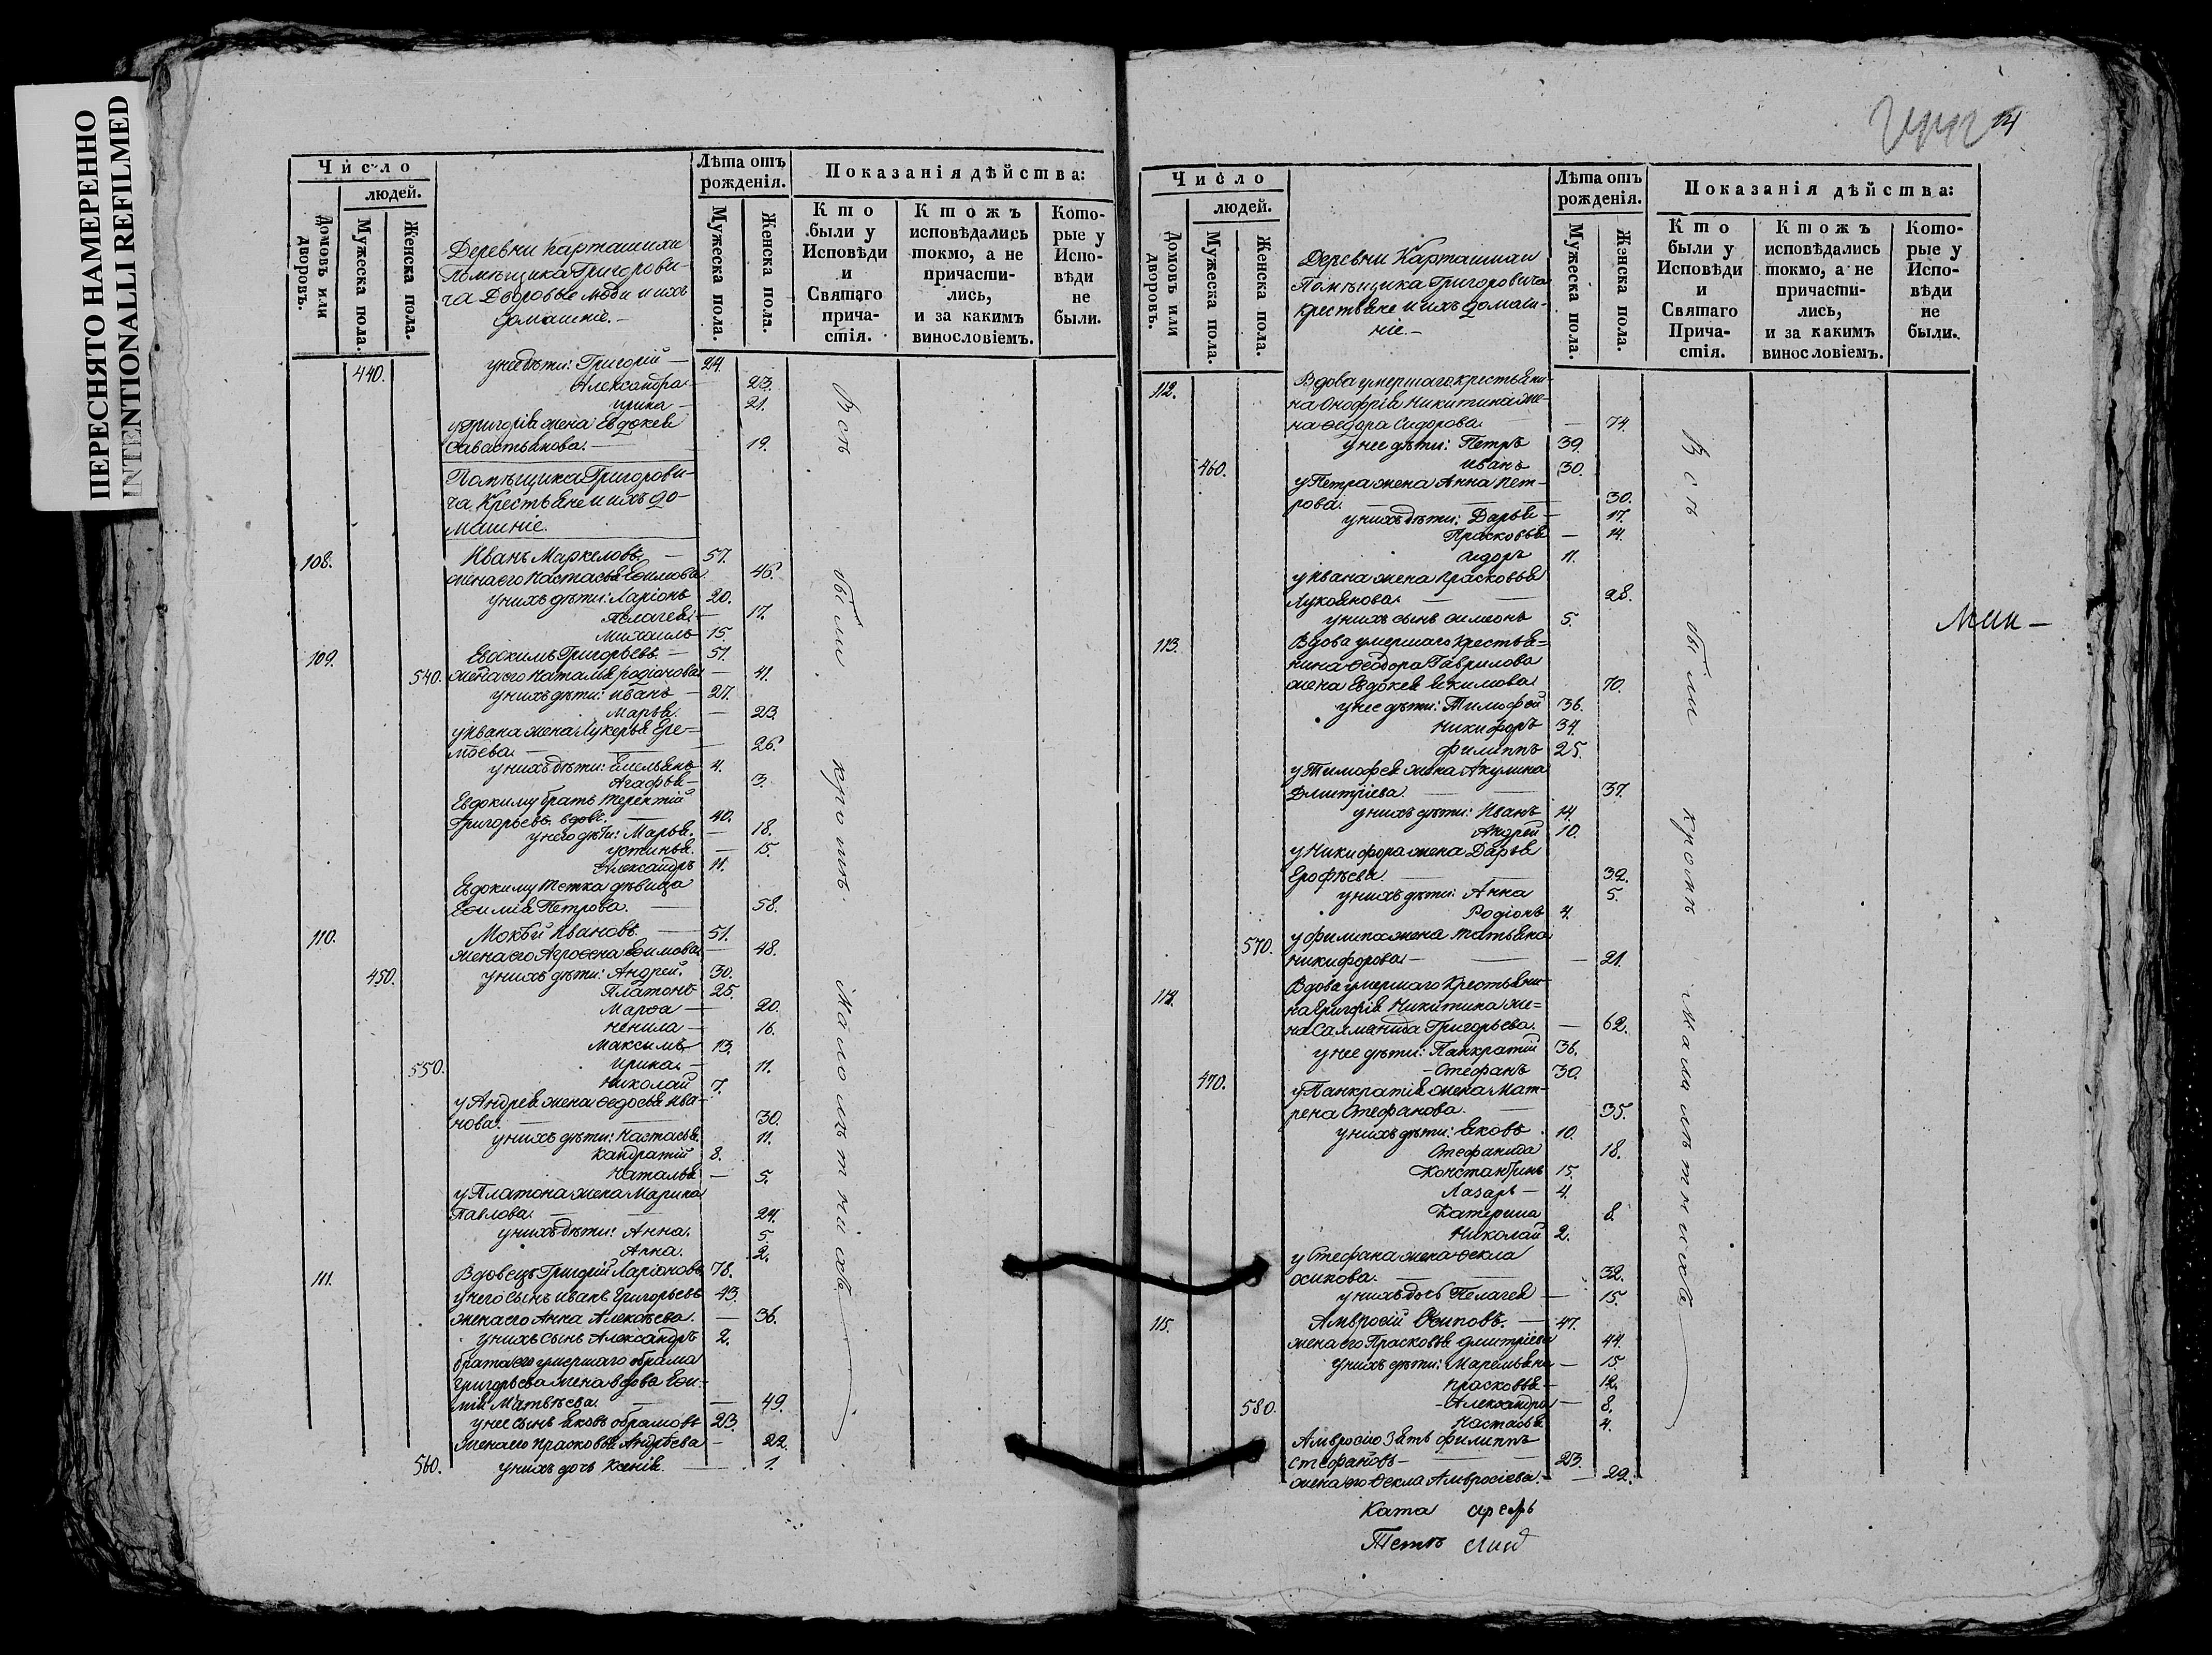 ПЕРЕСНЯТО НАМЕРЕННО
INTENTIONALLI REFILMED
Число
людей.
Домовъ или дворовъ.
Мужеска пола.
Женска пола.
Деревни Карташихи
Помѣщика Григорови-
ча Дворовые люди и ихъ
домашніе.-
Лѣта отъ рожденія.
Мужеска пола
Женска пола.
Показанія дѣйства:
Кто были у Исповѣди и Святаго прича-стія.
Ктожъ исповѣдались токмо, а не причасти-лись, и за какимъ винословіемъ.
Кото-рые у Испо-вѣди не были.
440. у нее дѣти: Григорій — 24
Александра — 23.
Ирина — 21.
у Григорія жена Евдокея
Савастьянова. — 19.
Помѣщика Григорови-
ча Крестьяне и ихъ до-
машніе.
108. Иванъ Маркеловъ. — 57.
жена его Настасья Еѳимова 46.
у нихъ дѣти: Ларіонъ 20.
Пелагея — 17.
Михаилъ 15.
109. Евдокимъ Григорьевъ. — 51.
540. жена его Наталія родіонова — 41.
у нихъ дѣти: Иванъ — 27.
Марья. — 23.
у Ивана жена Лукерья Ере-
мѣева. — 26.
у нихъ дѣти: Емельянъ 4.
Агафья — 3.
Евдокиму братъ Терентій
Григорьевъ. вдовъ. — 40.
у него дѣти: Марья. — 18.
устинья. — 15.
Александръ 11.
Евдокиму тетка дѣвица
Еѳимія Петрова. — 58.
110. Мокѣй Ивановъ. — 51.
жена его Агроѳена Еѳимова — 48.
450. у нихъ дѣти: Андрей. 30.
Платонъ 25.
Марѳа — 20.
Ненила — 16.
Максимъ 13.
550. Ирина. — 11.
Николай 7.
у Андрея жена Ѳедосья Ива-
нова. — 30.
у нихъ дѣти: Настасья. 11.
Кандратій 8.
Наталья — 5.
у Платона жена Марина
Павлова. — 24.
у нихъ дѣти: Анна. 5.
Анна. 2.
111. Вдовецъ Григорій Ларіоновъ 78.
у него сынъ Иванъ Григорьевъ 43.
жена его Анна Алексѣева. — 36.
у нихъ сынъ Александръ 2.
брата его умершаго абрама
григорьева жена вдова Еѳи-
мія Матвѣева. — 49.
у нее сынъ Яковъ абрамовъ 23.
жена его Прасковья Андрѣева — 22.
560. у нихъ дочь Ксенія. — 1.
Всѣ были кромѣ малолѣтнихъ
14
Число
людей.
Домовъ или дворовъ.
Мужеска пола.
Женска пола.
Деревни Карташихи
Помѣщика Григоровича
крестьяне и ихъ домаш-
ніе.-
Лѣта отъ рожденія.
Мужеска пола.
Женска пола.
Показанія дѣйства:
Кто были у Исповѣди и Святаго Прича-стія.
Ктожъ исповѣдались токмо, а не причасти-лись, и за какимъ винословіемъ.
Кото-рые у Испо-вѣди не были.
112. Вдова умершаго крестьяни-
на Онофрія Никитина же-
на Ѳедора Сидорова. — 74.
у нее дѣти: Петръ 39.
460. Иванъ 30.
у Петра жена Анна Пет-
рова. — 30.
у нихъ дѣти: Дарья — 17.
Прасковья — 14.
Сидоръ 11.
у Ивана жена Прасковья
Лукоянова. — 28.
у нихъ сынъ Симеонъ 5.
113. Вдова умершаго крестья=
нина Ѳеодора Гаврилова
жена Евдокея Якимова 70.
у нее дѣти: Тимофей 36.
Никифоръ 34.
Филиппъ 25.
у Тимофея жена Акулина
Дмитріева. — 37.
у нихъ дѣти: Иванъ 14.
Андрей 10.
у Никифора жена Дарья
Ерофѣева. — 32.
у нихъ дѣти: Анна 5.
Родіонъ 4.
570. у Филиппа жена Татьяна
Никифорова — 21.
114. Вдова умершаго Крестьяни-
на Григорія Никитина же=
на Саламанида Григорьева. — 62.
у нее дѣти: Панкратій 36.
470. Стефанъ 30.
у Панкратія жена Мат-
рена Стефанова. — 35.
у нихъ дѣти: Яковъ. 10.
Стефанида 18.
Константинъ 15.
Лазарь — 4.
Катерина 8.
Николай 2.
у Стефана жена Ѳекла
осипова. — 32.
у нихъ дочь Пелагея — 15.
115. Амвросій Осиповъ. — 47.
жена его Прасковья Дмитріева 44.
у нихъ дѣти: Маремьяна — 15.
Прасковья — 12.
580. Александра — 8.
Настасья 4.
Амвросію зять Филиппъ
Стефановъ — 23.
жена его Ѳекла Амвросіева. — 22.
Всѣ были кромѣ малолѣтнихъ